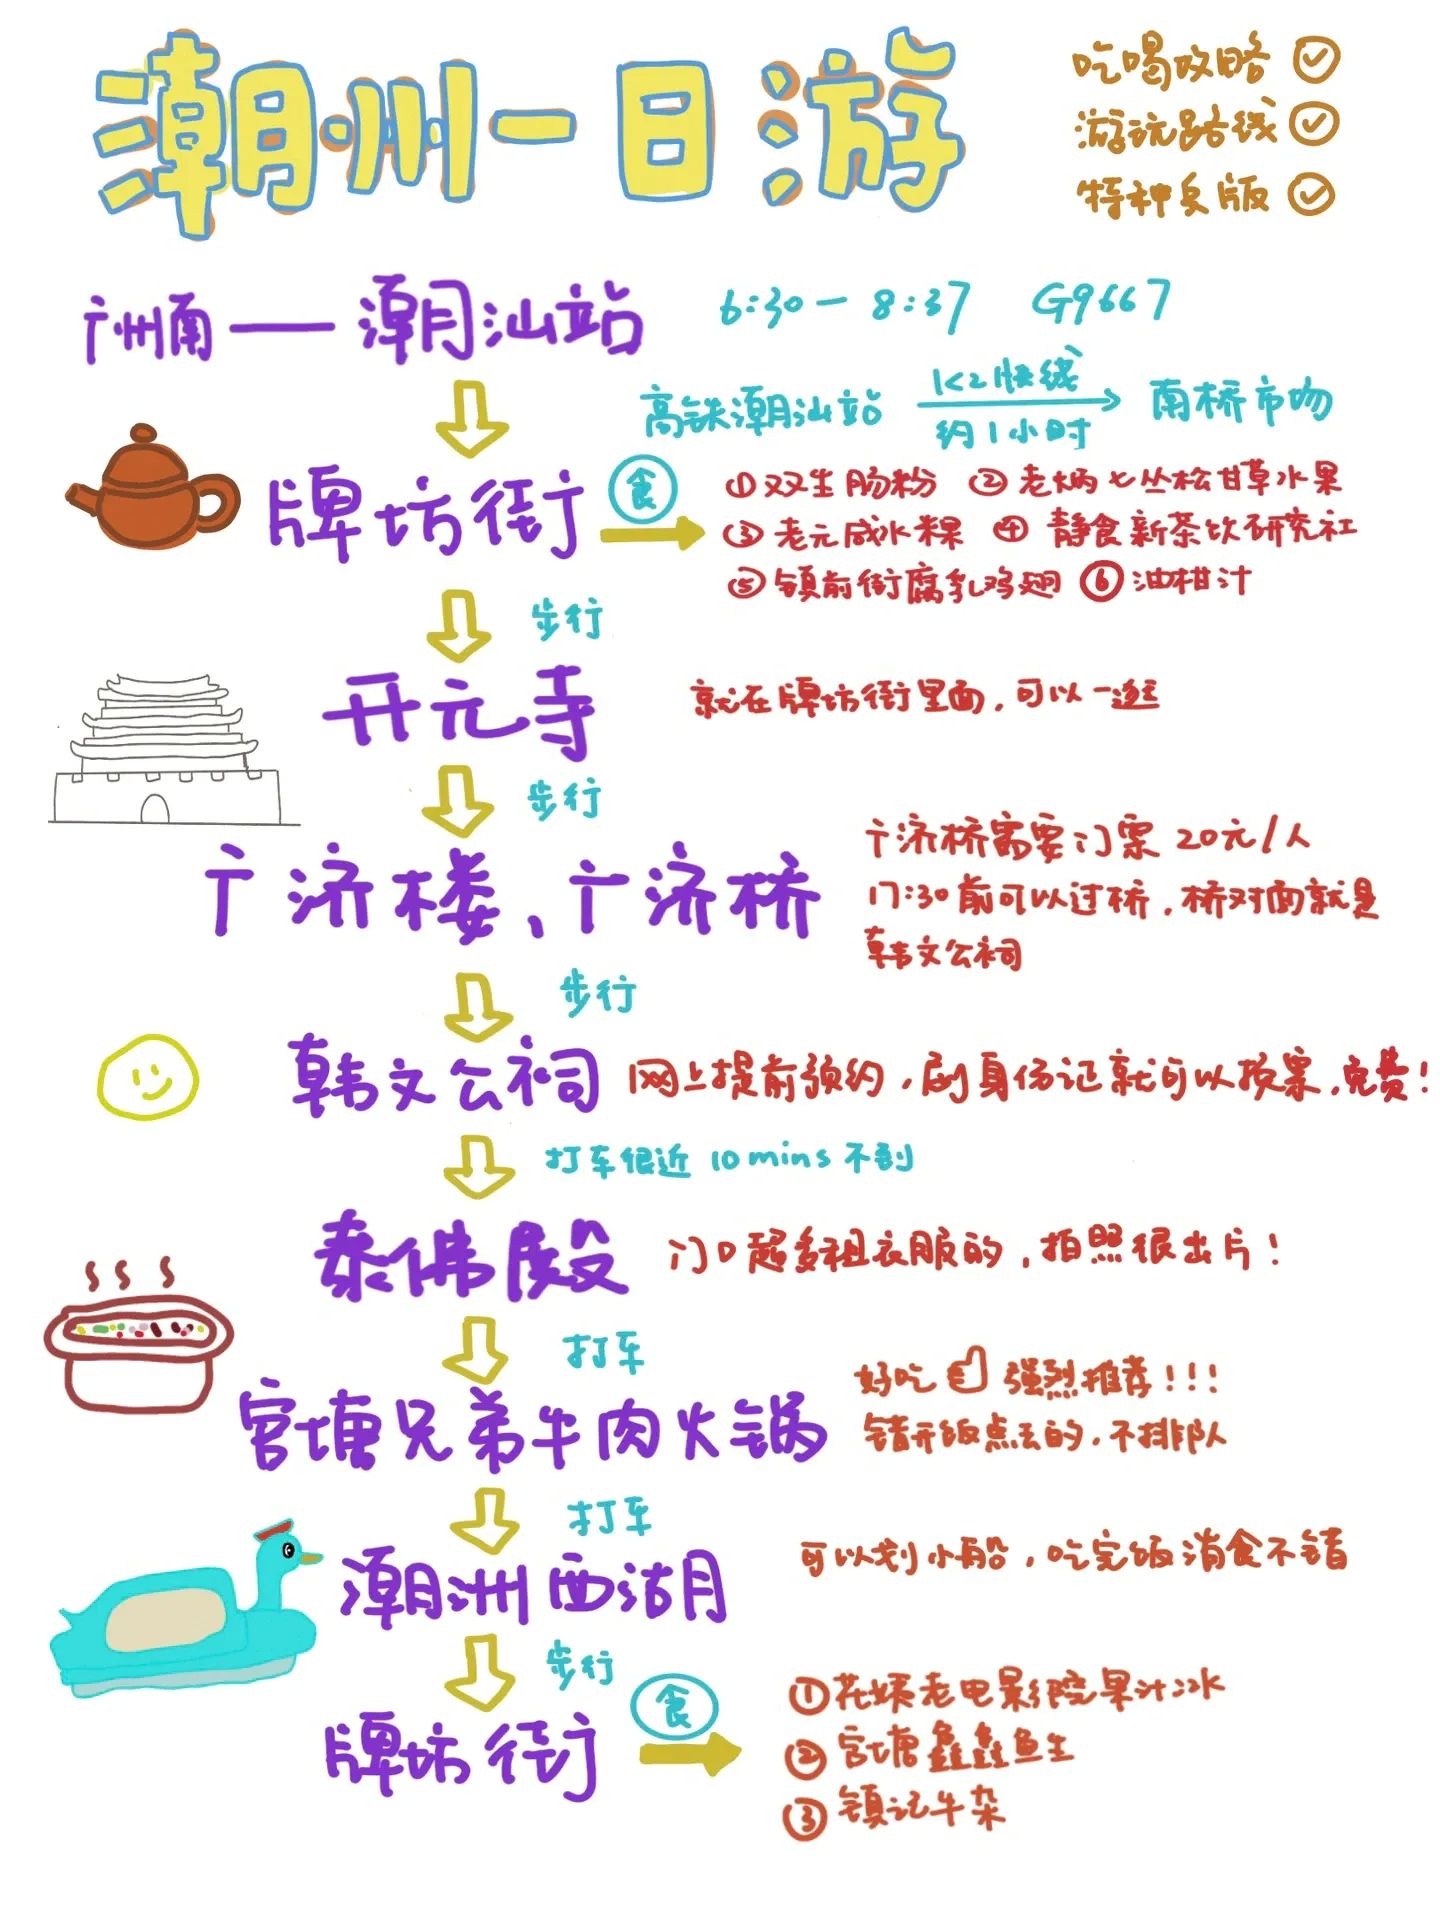 潮州一日游
吃喝攻略
游玩路线
特种兵版
广州南——潮汕站 6:30—8:37 G9667
高铁潮汕站 K2快线 约1小时 南桥市场
牌坊街 食 ①双生肠粉 ②老炳七丛松甘草水果
③老元咸水粿 ④静食新茶饮研究社
⑤镇前街腐乳鸡翅 ⑥油柑汁
步行
开元寺 就在牌坊街里面，可以一逛
步行
广济楼、广济桥 广济桥需要门票20元/人
17:30前可以过桥，桥对面就是
韩文公祠
步行
韩文公祠 网上提前预约，刷身份证就可以换票，免费！
打车很近 10mins不到
泰佛殿 门口超多租衣服的，拍照很出片！
打车
官塘兄弟牛肉火锅 好吃 强烈推荐！！！
错开饭点去的，不排队
打车
潮洲西湖 可以划小船，吃完饭消食不错
步行
牌坊街 食 ①花姨老电影院果汁冰
②官塘鑫鑫鱼生
③镇记牛杂